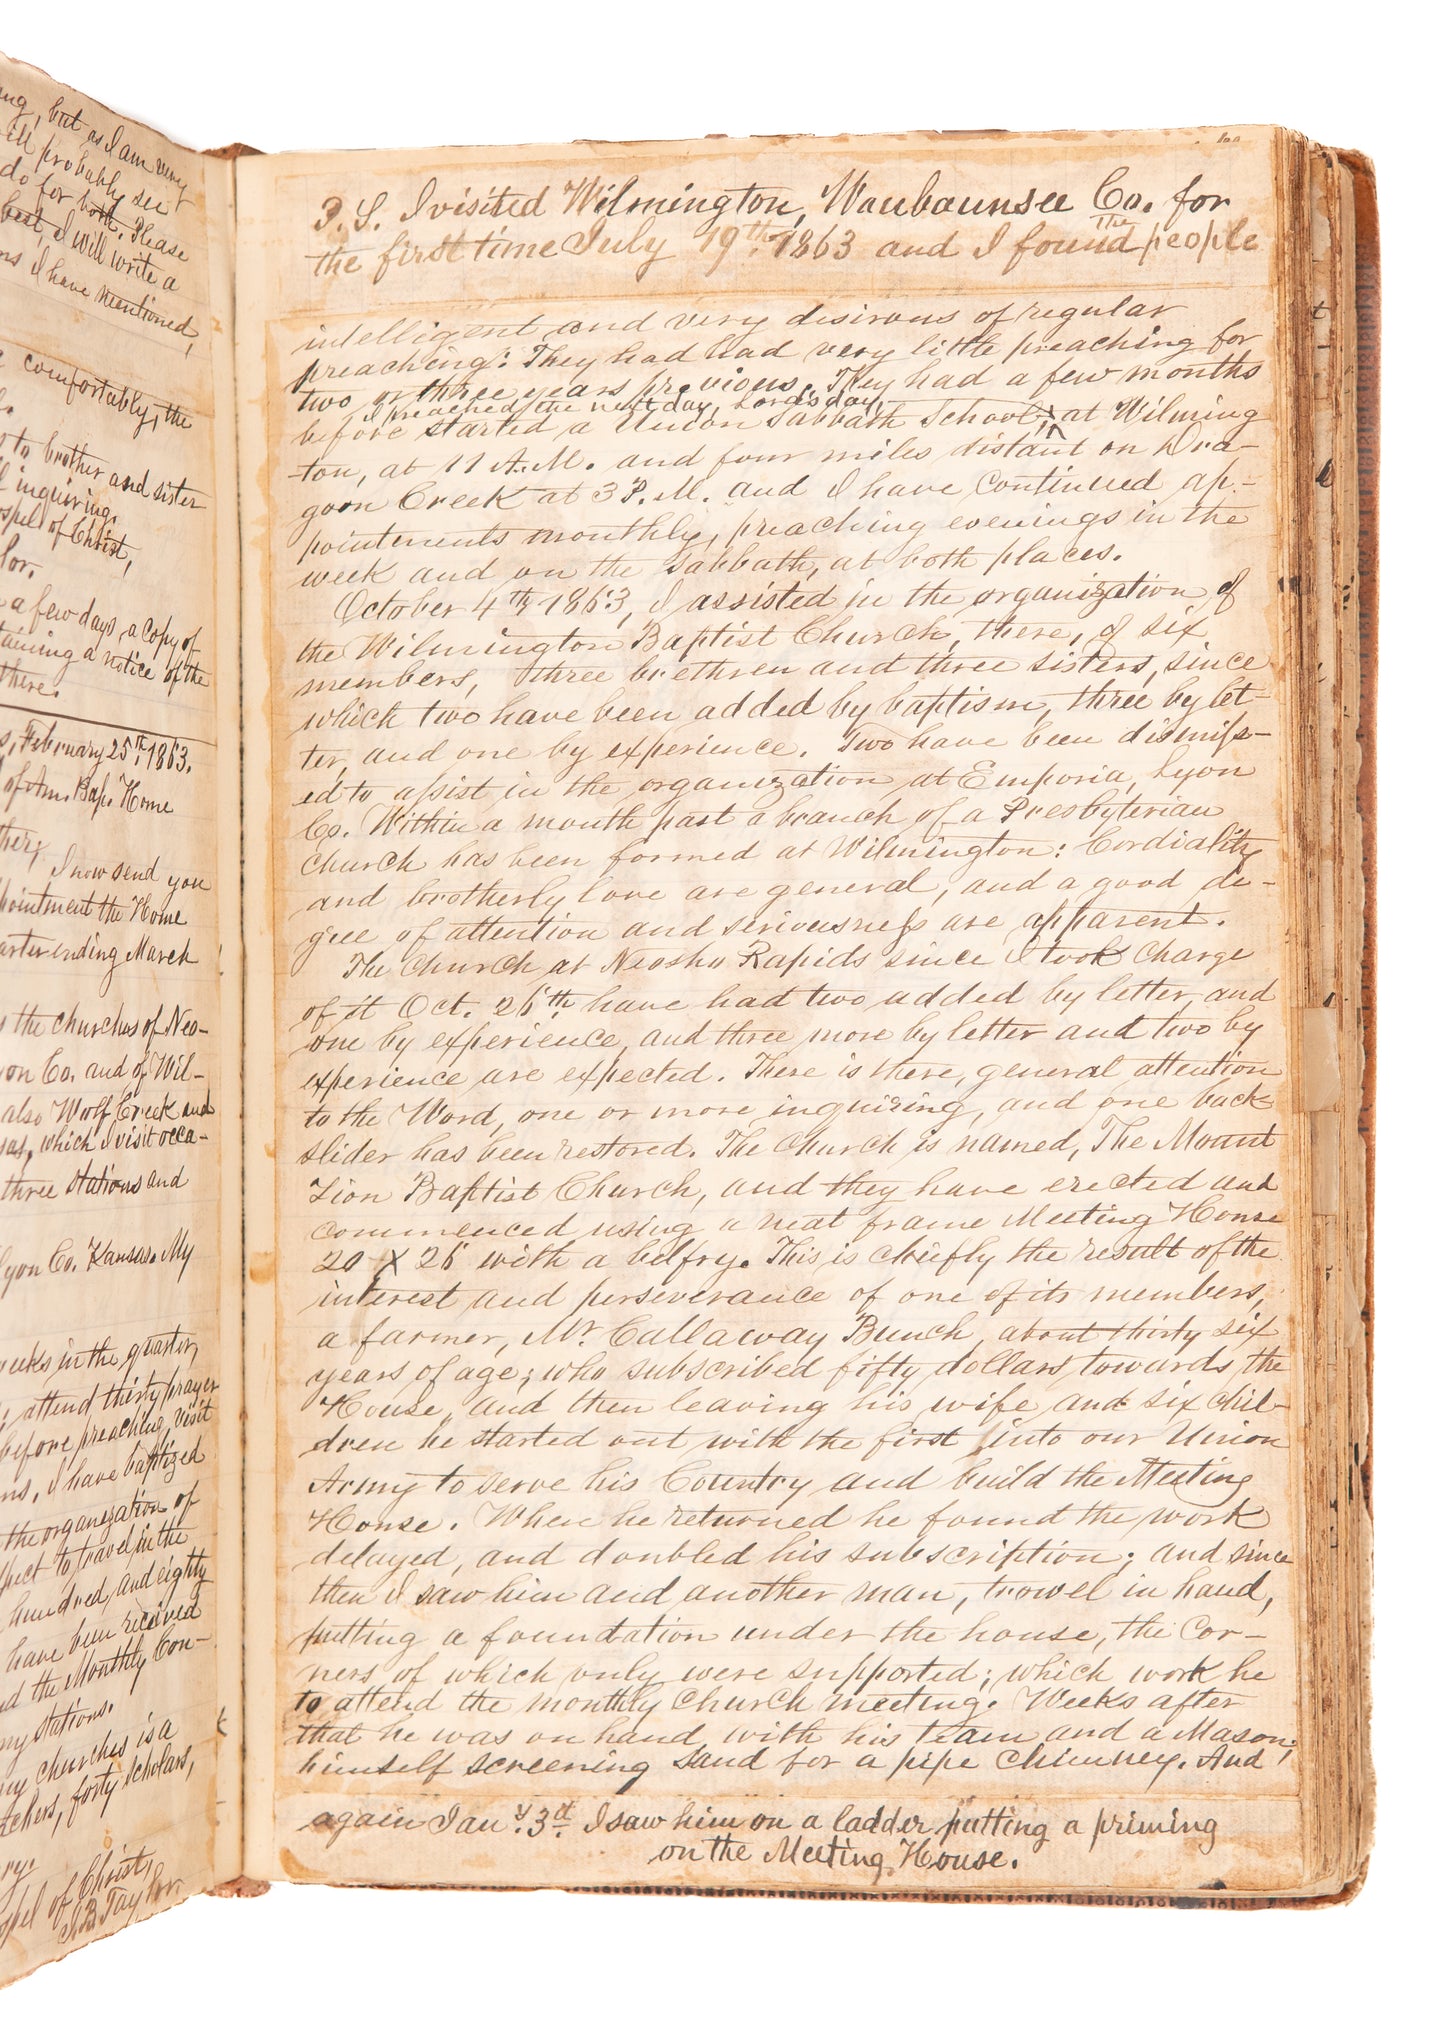 ng, but as I am very
will probably see
do for both. Please
best, I will write a
ns I have mentioned,
comfortably, the
to brother and sister
inquiring.
ospel of Christ,
lor.
a few days, a copy of
taining a notice of the
there.
s, February 25th, 1863.
of Am. Bap. Home
ther;
I now send you
pointment the Home
arter ending March
the churches of Neo-
yon Co. and of Wil-
also Wolf Creek and
sas, which I visit occa-
three stations and
Lyon Co. Kansas. My
weeks in the quarter,
attend thirty prayer
before preaching, visit
ns, I have baptized
the organization of
pect to travel in the
hundred, and eighty
have been received
nd the Monthly Con-
my stations.
my churches is a
achers, forty scholars,
ry.
ospel of Christ,
J. B. Taylor.
P.S. I visited Wilmington, Waubaunsee Co. for
the first time July 19th 1863 and I found the people
intelligent and very disirous of regular
preaching: They had had very little preaching for
two or three years previous. They had a few months
I preached the next day, Lord's day,
before started a Union Sabbath School; at Wilming
-ton, at 11 A.M. and four miles distant on Dra-
goon Creek at 3 P.M. and I have continued ap-
pointments monthly, preaching evenings in the
week and on the Sabbath, at both places.
October 4th, 1863, I assisted in the organization of
the Wilmington Baptist Church, there, of six
members, three brethren and three sisters, since
which two have been added by baptism, three by let-
ter, and one by experience. Two have been dismiss-
ed to assist in the organization at Emporia, Lyon
Co. Within a month past a branch of a Presbyterian
church has been formed at Wilmington: Cordiality
and brotherly love are general, and a good de-
gree of attention and seriousness are apparent.
The Church at Neosho Rapids since I took charge
of it Oct. 26th have had two added by letter, and
one by experience, and three more by letter and two by
experience are expected. There is there, general attention
to the Word, one or more inquiring, and one back-
slider has been restored. The Church is named, The Mount
Zion Baptist Church, and they have erected and
commenced using a neat frame Meeting House
20 X 26 with a belfry. This is chiefly the result of the
interest and perseverance of one of its members,
a farmer, Mr. Callaway Bunch, about thirty six
years of age; who subscribed fifty dollars towards the
House, and then leaving his wife and six chil-
dren he started out with the first into our Union
Army to serve his Country and build the Meeting
House. When he returned he found the work
delayed, and doubled his subscription; and since
then I saw him and another man, trowel in hand,
putting a foundation under the house, the cor-
ners of which only were supported; which work he
to attend the monthly Church meeting. Weeks after
that he was on hand with his team and a Mason;
himself screening sand for a pipe chimney. And
again Jany. 3d. I saw him on a ladder putting a priming
on the Meeting House.